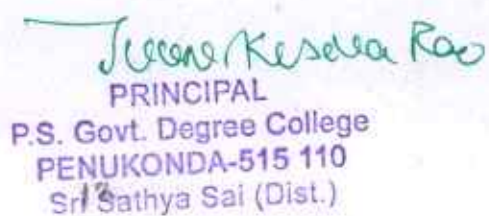 Kesava Rao
PRINCIPAL
P.S. Govt. Degree College
PENUKONDA-515 110
Sri Sathya Sai (Dist.)